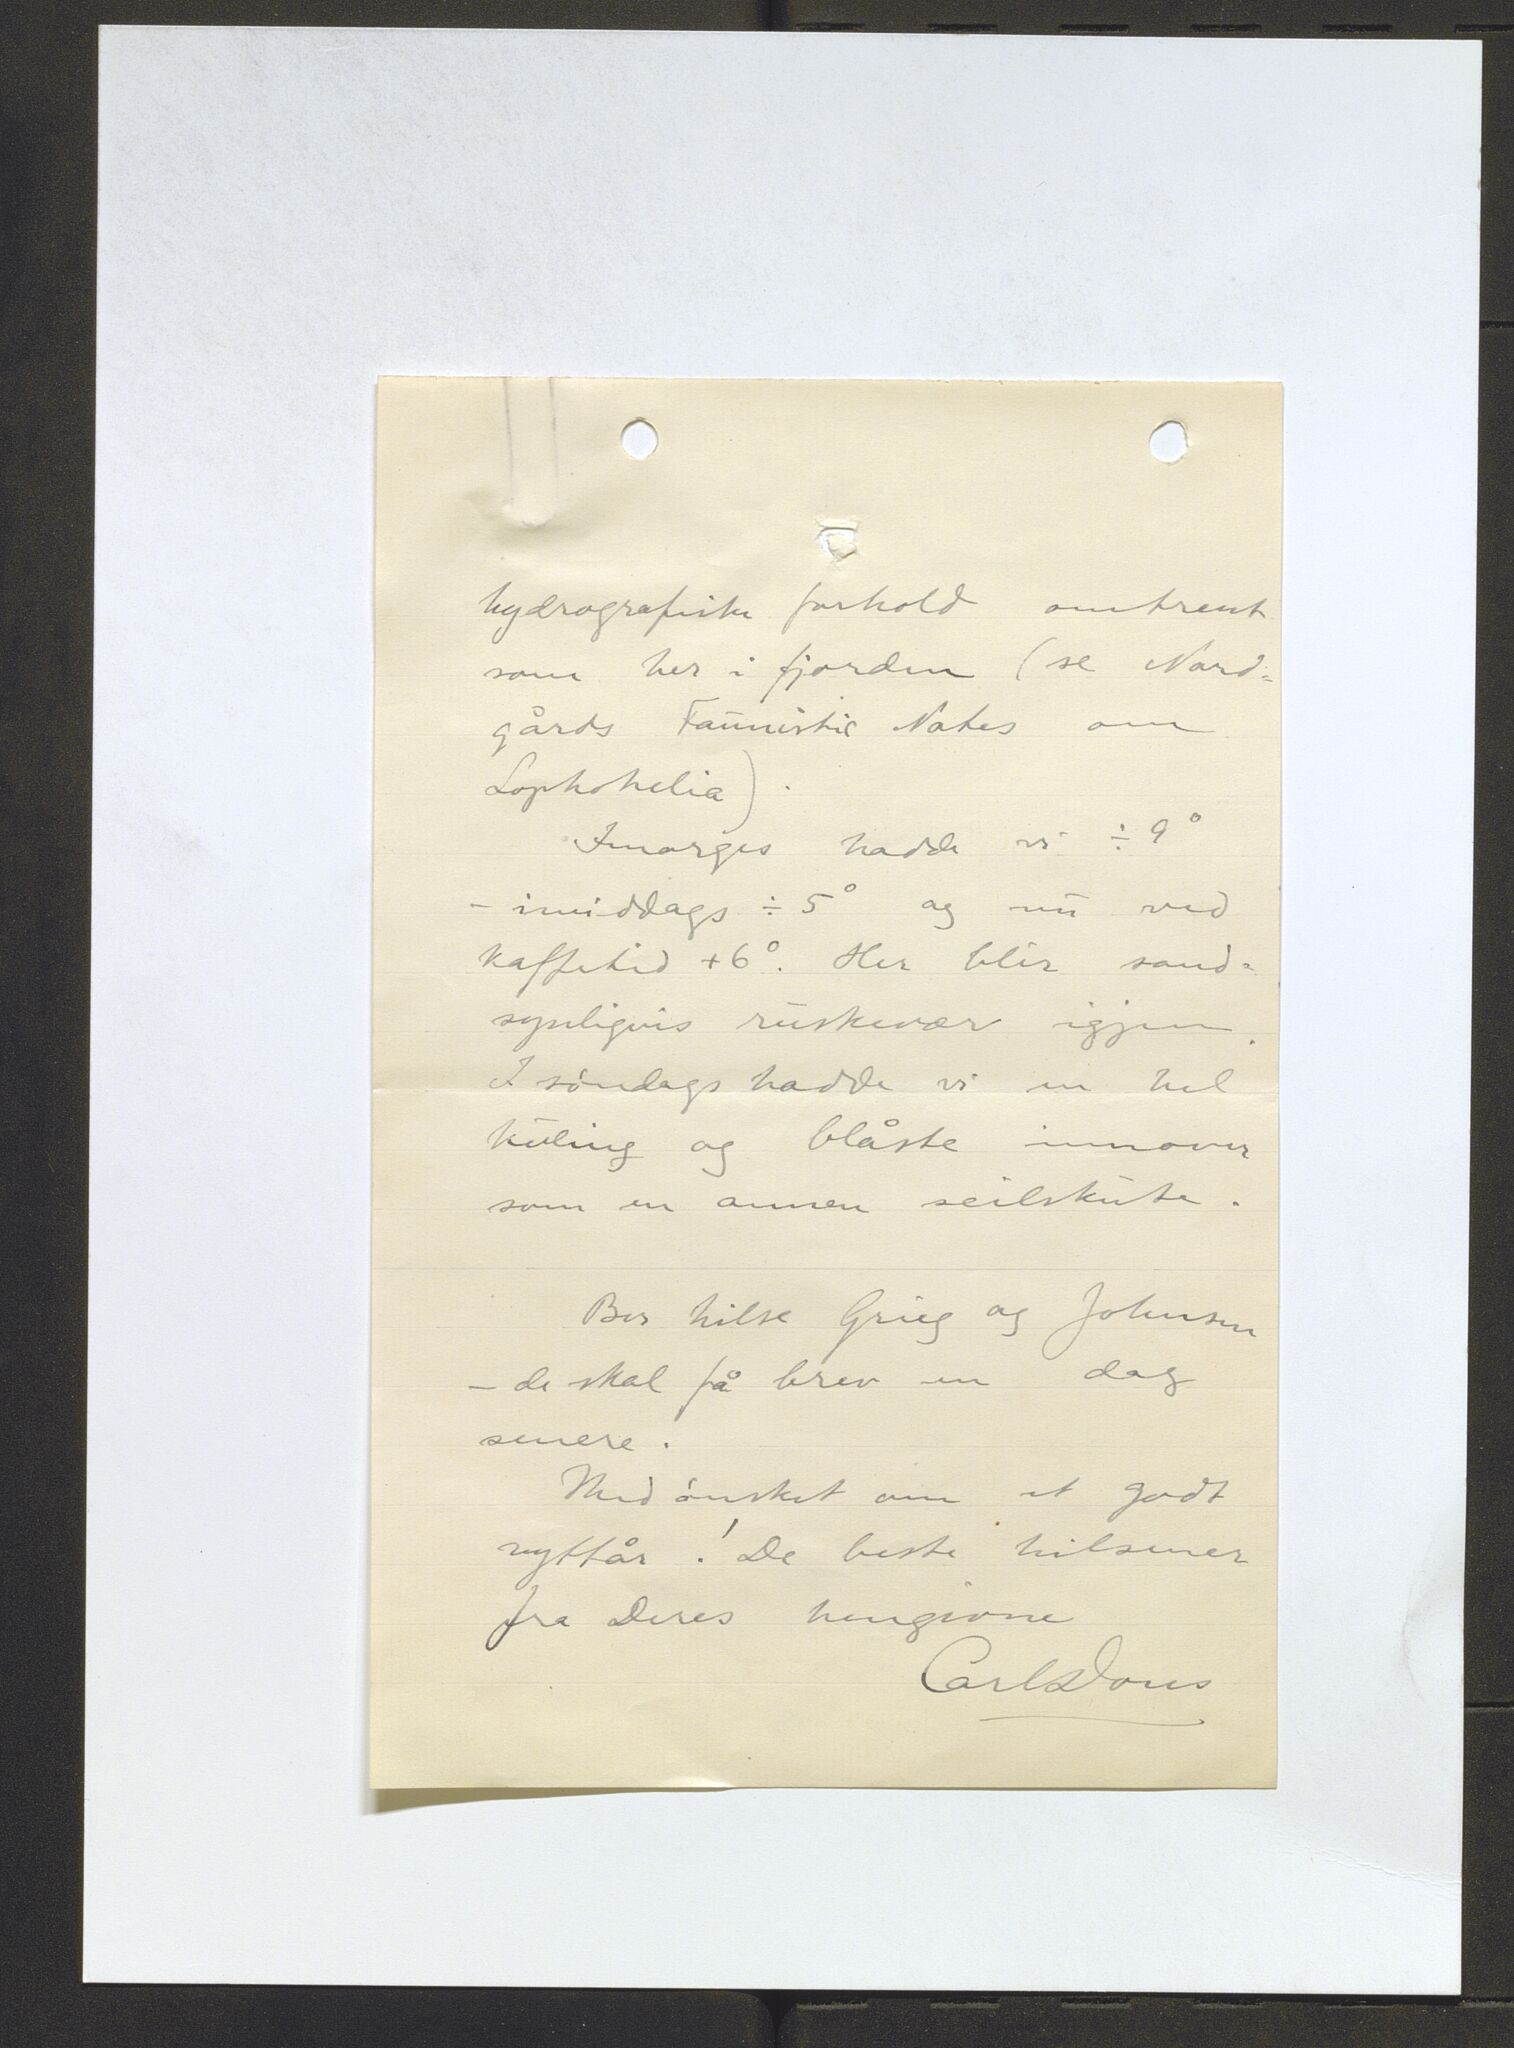 hydrografiske forhold omtrent
som her i fjorden (se Nord=
gårds Faunistic Notes om
Lophohelia).
Imorges hadde vi ÷ 9°
- imiddags ÷ 5° og nu ved
kaffetid +6°. Her blir sand=
synligvis ruskevær igjen.
I søndags hadde vi en hel
kuling og blåste innover
som en annen seilskute.
Ber hilse Grieg og Johnsen
- de skal få brev en dag
senere.
Med ønsket om et godt
nyttår! De beste hilsener
fra Deres hengivne
Carl Dons